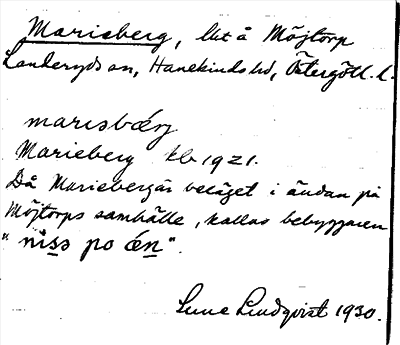 Marieberg, lht å Möjtorp
Landeryds sn, Hanekinds hd, Östergötl. l.
marisbærj
Marieberg kb 1921.
Då Marieberg är beläget i ändan på
Möjtorps samhälle, kallas bebyggaren
"nisə po æn".
Sune Lindqvist 1930.